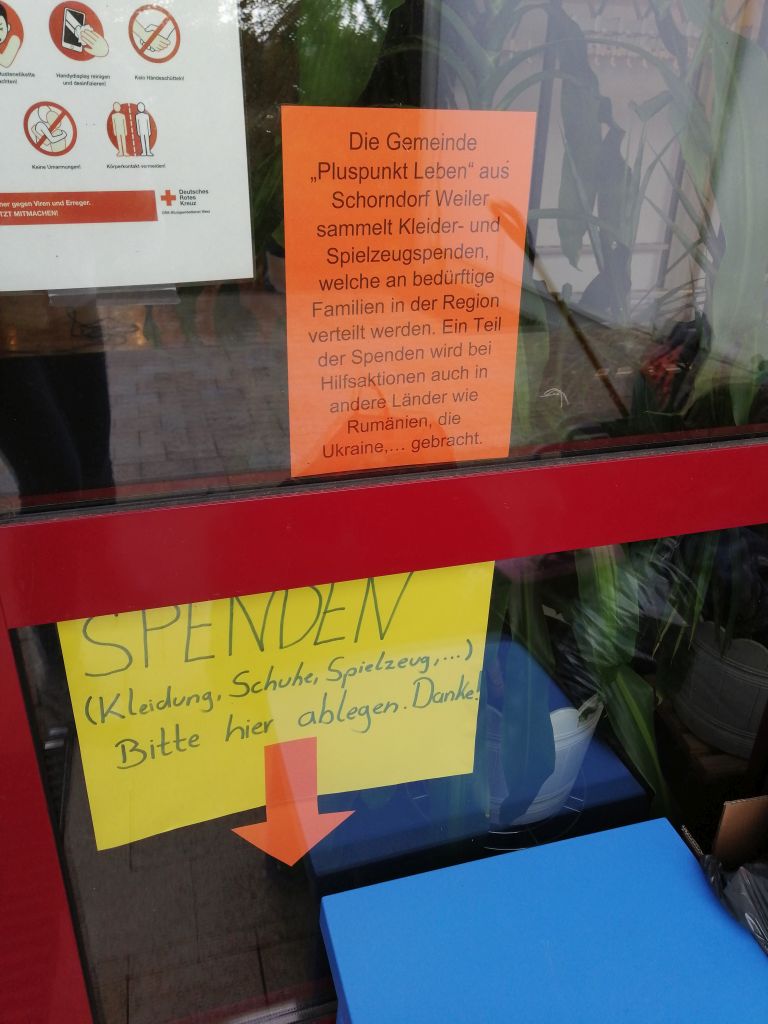 Handydisplay reinigen
und desinfizieren!
Kein Händeschütteln!
Keine Umarmungen!
Körperkontakt vermeiden!
gegen Viren und Erreger.
MITMACHEN!
Deutsches
Rotes
Kreuz
Die Gemeinde
„Pluspunkt Leben“ aus
Schorndorf Weiler
sammelt Kleider- und
Spielzeugspenden,
welche an bedürftige
Familien in der Region
verteilt werden. Ein Teil
der Spenden wird bei
Hilfsaktionen auch in
andere Länder wie
Rumänien, die
Ukraine,... gebracht.
SPENDEN
(Kleidung, Schuhe, Spielzeug,...)
Bitte hier ablegen. Danke!